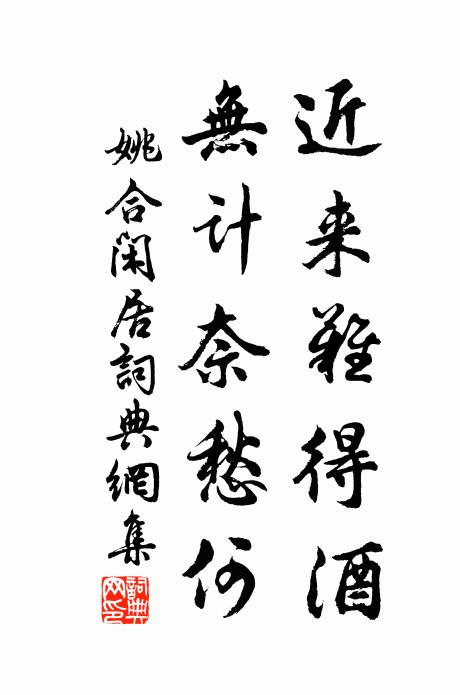 近来難得酒
無计奈愁何
姚合閑居詞典網集
詞典網印